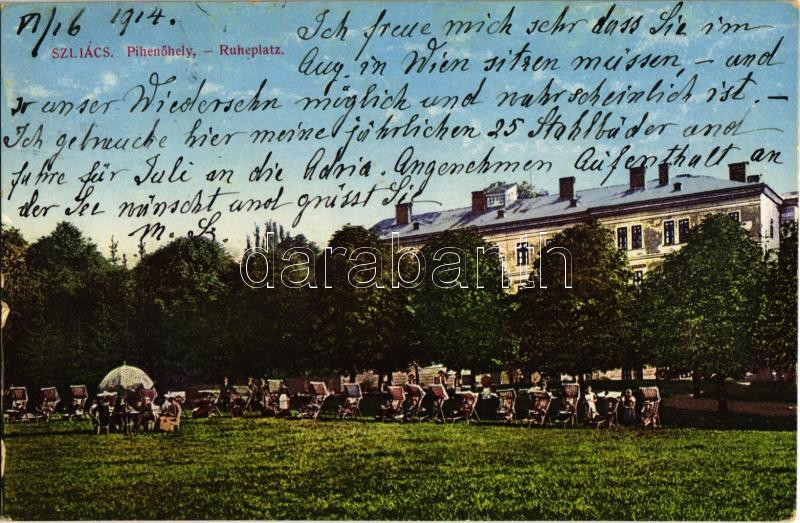 VI/16 1914.
SZLIÁCS. Pihenőhely, – Ruheplatz.
Ich freue mich sehr dass Sie im
Aug. in Wien sitzen müssen, – und
so unser Wiedersehn möglich und wahrscheinlich ist. –
Ich gebrauche hier meine jährlichen 25 Stahlbäder und
fahre für Juli an die Adria. Angenehmen Aufenthalt an
der See wünscht und grüsst Sie
darabanth